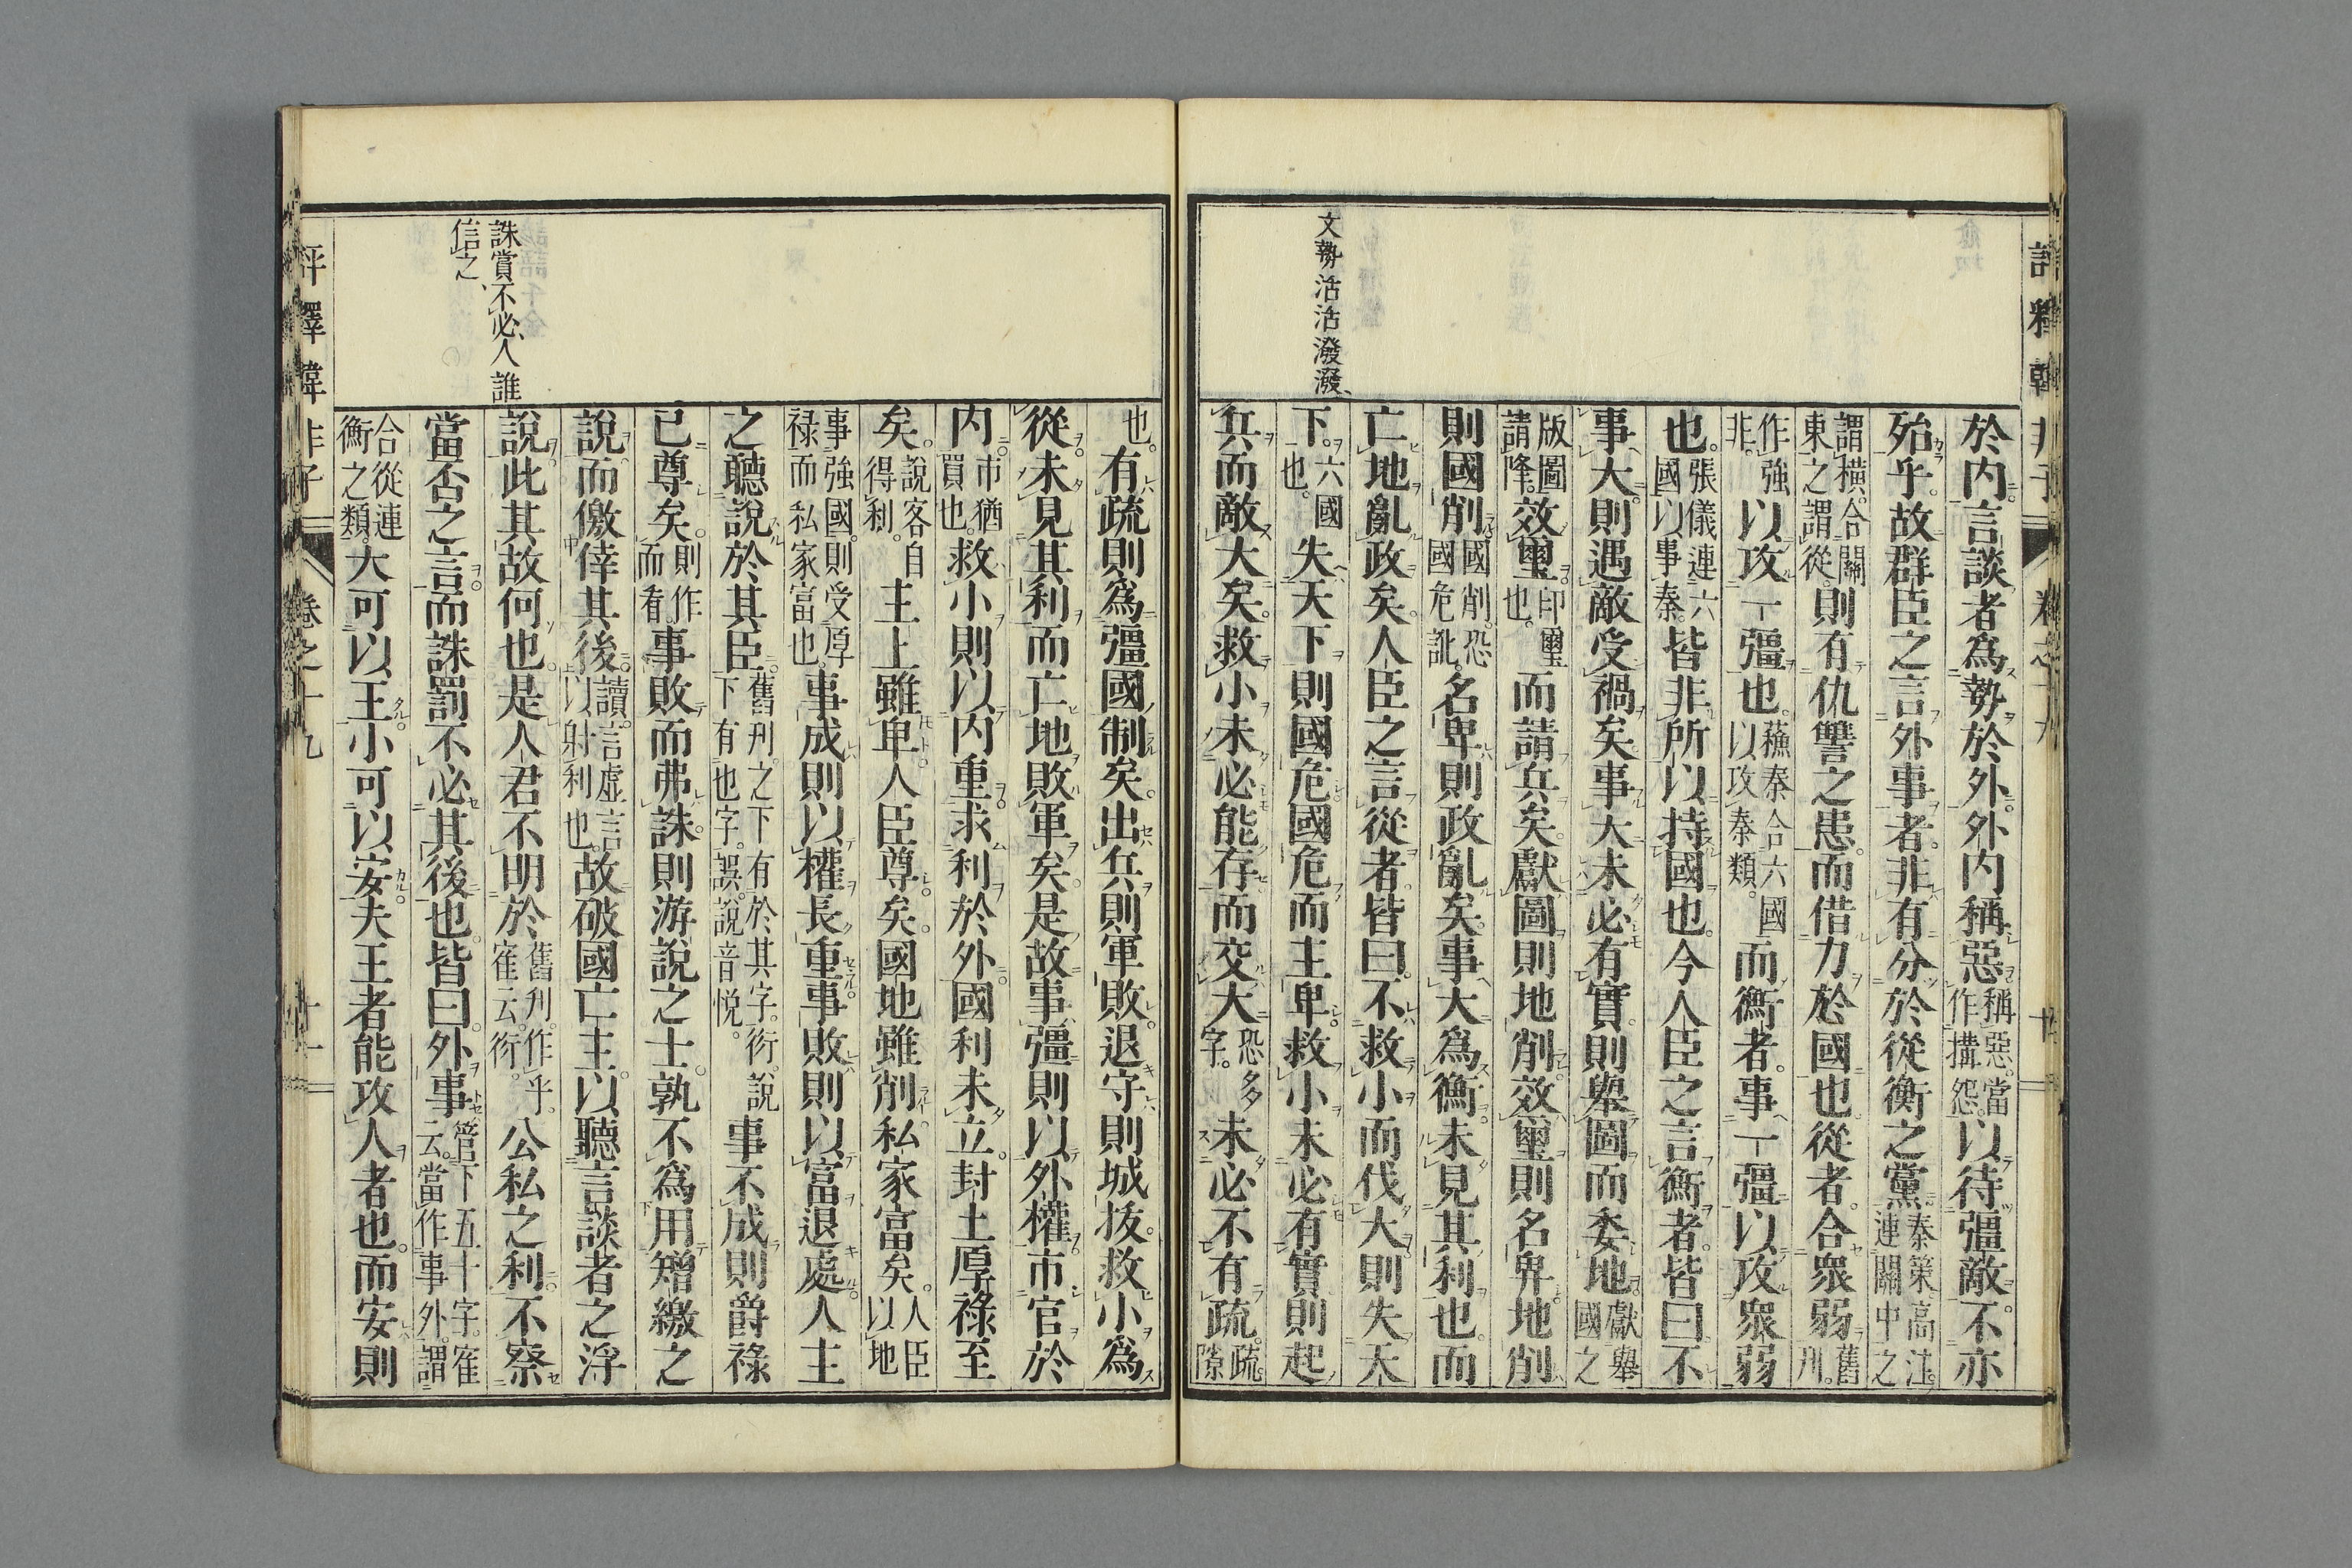 於内。言談者爲勢於外。外内稱惡。稱惡當作搆怨。以待彊敵。不亦
殆乎。故群臣之言外事者。非有分於從衡之黨。秦策高注。連關中之
謂橫。合關東之謂從。則有仇讐之患。而借力於國也。從者。合衆弱舊刋。
作強非。以攻一彊也。蘇秦合六國以攻秦類。而衡者。事一彊以攻衆弱
也。張儀連六國以事秦。皆非所以持國也。今人臣之言衡者。皆曰。不
事大。則遇敵受禍矣。事大未必有實。則舉圖而委地。獻舉國之
版圖請降。效璽。印璽也。而請兵矣。獻圖則地削。效璽則名卑。地削
則國削。國削。恐國危訛。名卑則政亂矣。事大爲衡。未見其利也。而
亡地亂政矣。人臣之言從者。皆曰。不救小而伐大。則失天
下。六國也。失天下則國危。國危而主卑。救小未必有實。則起
兵而敵大矣。救小未必能存。而交大恐多字。未必不有疏。疏。隙
也。有疏則爲彊國制矣。出兵則軍敗。退守則城拔。救小爲
從。未見其利。而亡地敗軍矣。是故事彊則以外權市官於
内。市猶買也。救小則以内重求利於外。國利未立。封土厚祿至
矣。說客自得利。主上雖卑。人臣尊矣。國地雖削。私家富矣。人臣以地
事強國。則受厚祿而私家富也。事成則以權長重。事敗則以富退處。人主
之聽說於其臣。舊刋之下有於其字。衍。說下有也字。誤。說音悅。事不成則爵祿
已尊矣。則作而看。事敗而弗誅。則游說之士。孰不爲用矰繳之
說。而儌倖其後。讀。言虛言以射利也。故破國亡主。以聽言談者之浮
說。此其故何也。是人君不明於舊刋。作乎。寉云。衍。公私之利。不察
當否之言。而誅罰不必其後也。皆曰。外事管下五十字。寉云。當作事外。謂
合從連衡之類。大可以王。小可以安。夫王者能攻人者也。而安則
文勢活活潑潑、
誅賞不必、人誰
信之、
卷之十九
十一